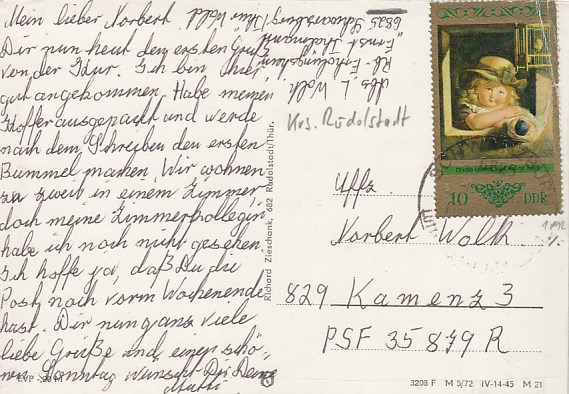 Mein lieber Norbert.
Dir nun heut den ersten Gruß
von der Kur. Ich bin hier
gut angekommen. Habe meinen
Koffer ausgepackt und werde
nach dem Schreiben den ersten
Bummel machen. Wir wohnen
zu zweit in einem Zimmer,
doch meine Zimmerkollegin
habe ich noch nicht gesehen.
Ich hoffe ja, daß Du die
Post noch vorm Wochenende
hast. Dir nun ganz viele
liebe Grüße und einen schö-
nen Sonntag wünscht Dir Deine
Mutti
Abs. L. Wolk
"Ernst Thälmann"
6825 Schwarzburg/Thür. Wald
Krs. Rudolstadt
Richard Zieschank, 682 Rudolstadt/Thür.
10 DDR
Uffz.
Norbert Wolk
829 Kamenz 3
PSF 35 879 R
EVP
3208 F M 5/72 IV-14-45 M 21